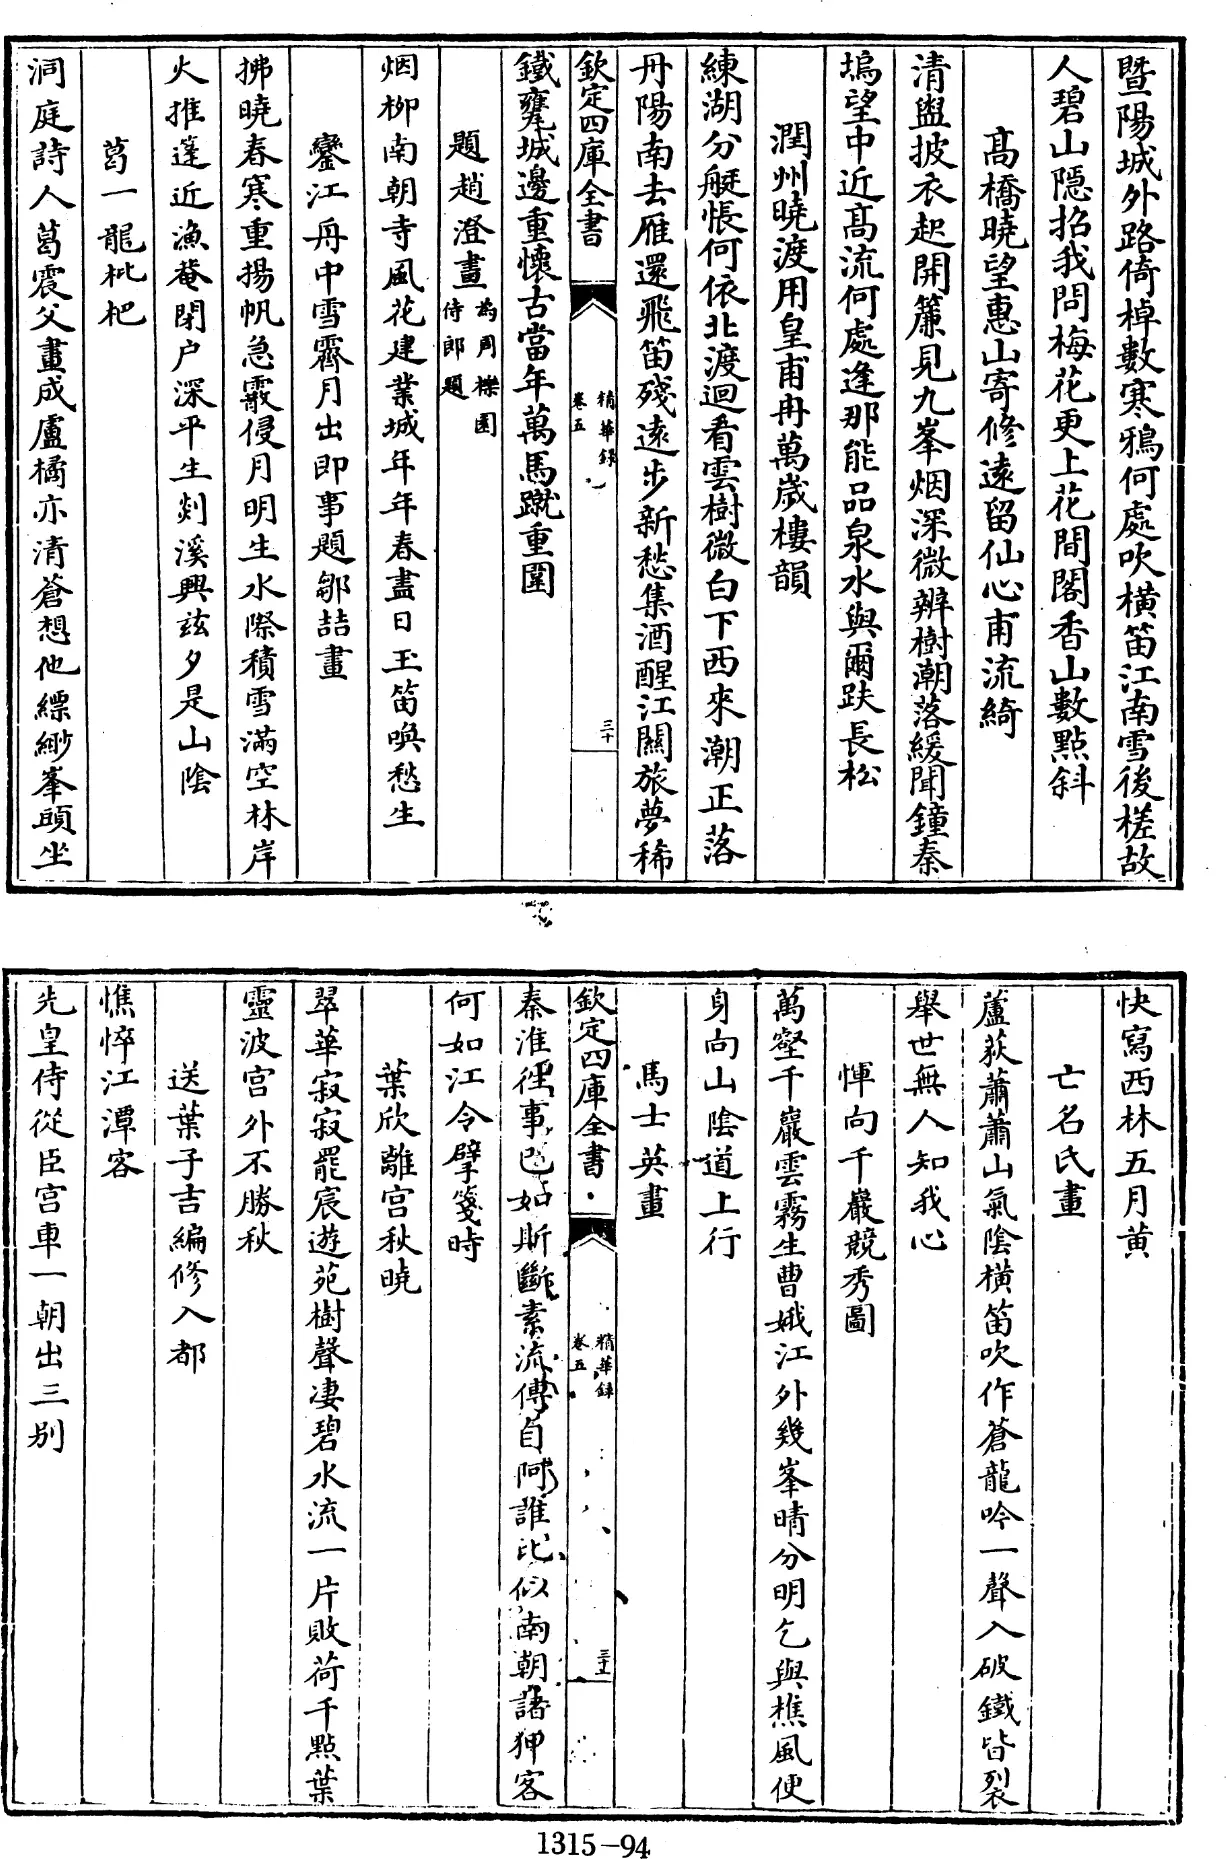 暨陽城外路倚棹數寒鴉何處吹横笛江南雪後槎故
人碧山隱招我問梅花更上花間閣香山數點斜
高橋曉望惠山寄修遠留仙心甫流綺
清盥披衣起開簾見九峯烟深微辨樹潮落緩聞鐘秦
塢望中近髙流何處逢那能品泉水與爾趺長松
潤州曉渡用皇甫冉萬歲樓韻
練湖分艇悵何依北渡迴看雲樹微白下西來潮正落
丹陽南去雁還飛笛殘遠步新愁集酒醒江關旅夢稀
欽定四庫全書
精華録
卷五
三十
鐵甕城邊重懷古當年萬馬蹴重圍
題趙澄畫
為周櫟園
侍郎題
烟柳南朝寺風花建業城年年春盡日玉笛喚愁生
鑾江舟中雪霽月出即事題鄒喆畫
拂曉春寒重揚帆急霰侵月明生水際積雪滿空林岸
火推蓬近漁菴閉户深平生剡溪興兹夕是山陰
葛一龍枇杷
洞庭詩人葛震父畫成盧橘亦清蒼想他縹緲峯頭坐
快寫西林五月黄
亡名氏畫
蘆荻蕭蕭山氣陰横笛吹作蒼龍吟一聲入破鐵皆裂
舉世無人知我心
惲向千巖競秀圖
萬壑千巖雲霧生曹娥江外幾峯晴分明乞與樵風便
身向山陰道上行
馬士英畫
欽定四庫全書
精華録
卷五
三十一
秦淮徃事已如斯斷素流傳自阿誰比似南朝諸狎客
何如江令擘箋時
葉欣離宫秋曉
翠華寂寂罷宸遊苑樹聲凄碧水流一片敗荷千點葉
靈波宫外不勝秋
送葉子吉編修入都
憔悴江潭客
先皇侍從臣宫車一朝出三别
1315-94